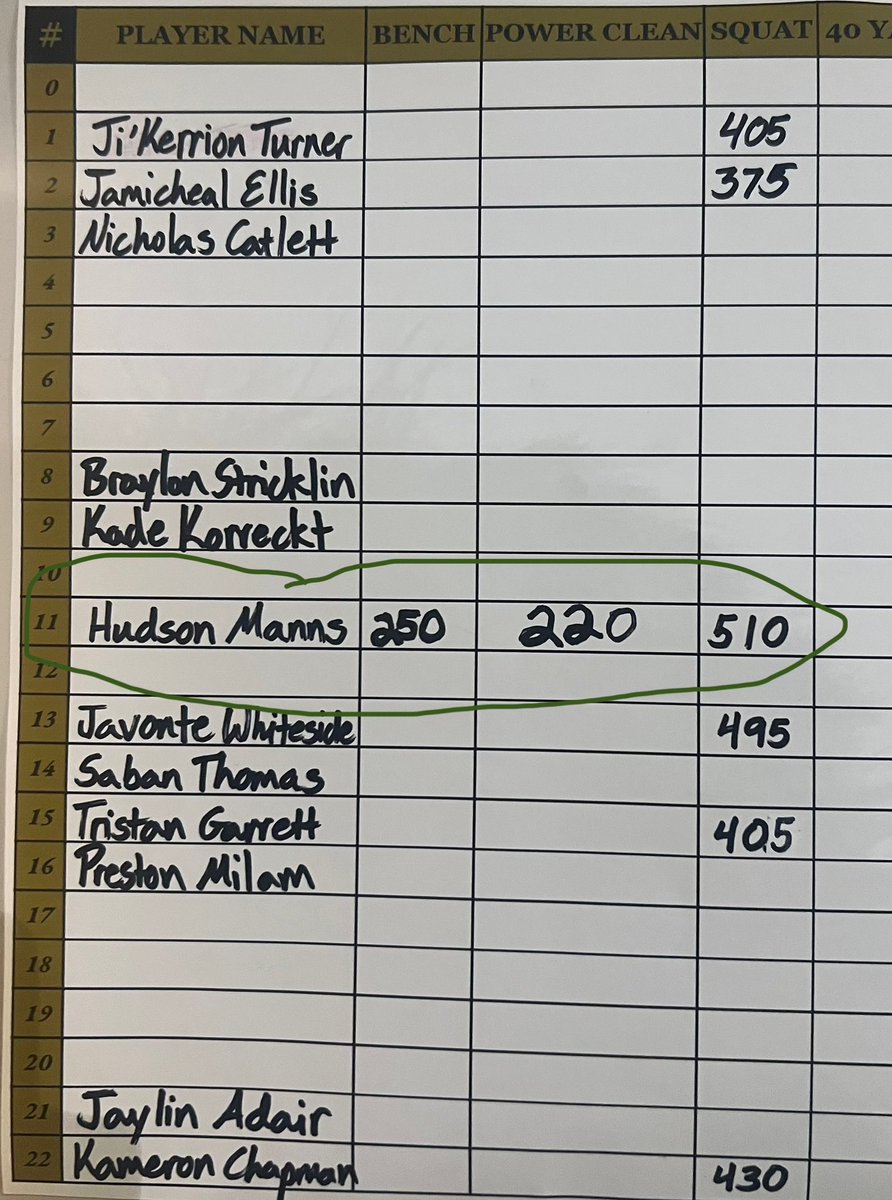 # PLAYER NAME BENCH POWER CLEAN SQUAT 40 YA
0
1 Ji'Kerrion Turner 405
2 Jamicheal Ellis 375
3 Nicholas Catlett
4
5
6
7
8 Braylon Stricklin
9 Kade Korreckt
10
11 Hudson Manns 250 220 510
12
13 Javonte Whiteside 495
14 Saban Thomas
15 Tristan Garrett 405
16 Preston Milam
17
18
19
20
21 Jaylin Adair
22 Kameron Chapman 430